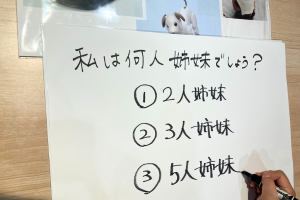 私は何人姉妹でしょう?
① 2人姉妹
② 3人姉妹
③ 5人姉妹